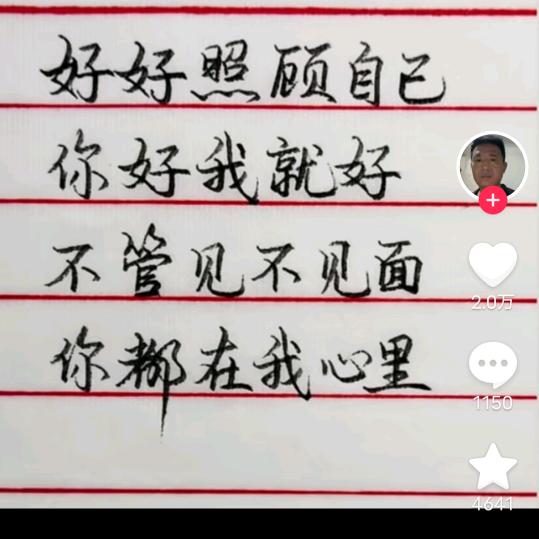 好好照顾自己
你好我就好
不管见不见面
你都在我心里
2.0万
1150
4641